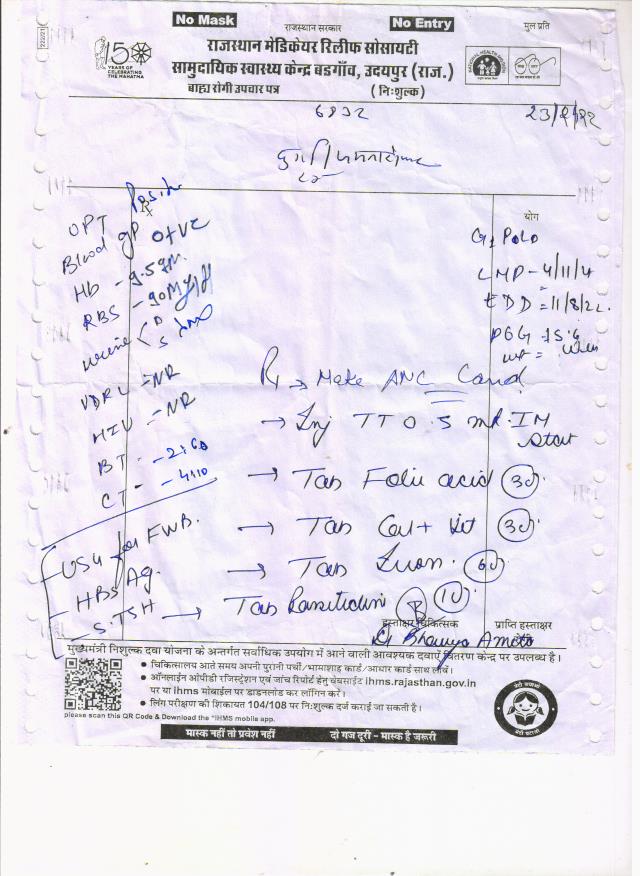 No Mask
राजस्थान सरकार
No Entry
मूल प्रति
राजस्थान मेडिकेयर रिलीफ सोसायटी
सामुदायिक स्वास्थ्य केन्द्र बडगाँव, उदयपुर (राज.)
बाह्य रोगी उपचार पत्र
(निःशुल्क)
150
YEARS OF
CELEBRATING
THE MAHATMA
6832
योग
UPT Positive
Rx
Blood gp O+ve
Hb - 9.5gm.
RBS - 90Mg/dl
Urine < A
S
VDRL - NR
HIV - NR
BT -
CT - 4:10
USG for FWB.
HBS Ag.
S.TSH
G1P0L0
LMP - 4/11/
EDD = 11/8/22.
wt =
Rx → Make ANC Card
→ Inj TT 0.5 ml IM
Stat
→ Tab Folic acid 30
→ Tab Cal + Vit 30
→ Tab Iron. 60
→ Tab Ranitidin 10
हस्ताक्षर चिकित्सक
प्राप्ति हस्ताक्षर
मुख्यमंत्री निशुल्क दवा योजना के अन्तर्गत सर्वाधिक उपयोग में आने वाली आवश्यक दवाऐं वितरण केन्द्र पर उपलब्ध है।
• चिकित्सालय आते समय अपनी पुरानी पर्ची/भामाशाह कार्ड/आधार कार्ड साथ लावें।
• ऑनलाईन ओपीडी रजिस्ट्रेशन एवं जांच रिपोर्ट हेतु वेबसाईट ihms.rajasthan.gov.in
पर या ihms मोबाईल पर डाउनलोड कर लॉगिन करें।
• लिंग परीक्षण की शिकायत 104/108 पर निःशुल्क दर्ज कराई जा सकती है।
please scan this QR Code & Download the "IHMS mobile app.
मास्क नहीं तो प्रवेश नहीं
दो गज दूरी – मास्क है जरूरी